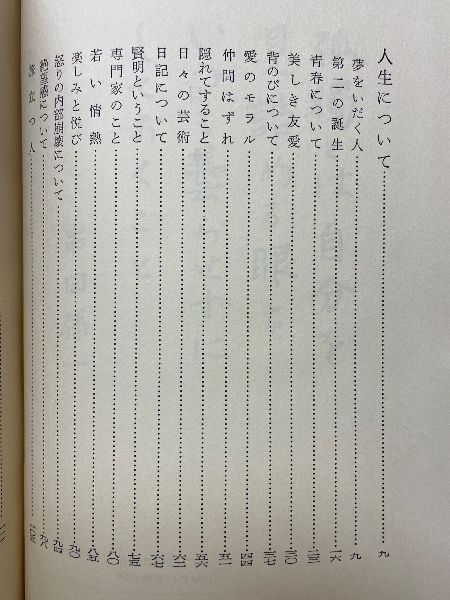 人生について……九
夢をいだく人……九
第二の誕生……一六
青春について……二三
美しき友愛……三〇
背のびについて……三七
愛のモラル……四四
仲間はずれ……五一
隠れてすること……五六
日々の芸術……六二
日記について……六七
賢明ということ……七五
専門家のこと……八〇
若い情熱……八五
楽しみと悦び……九〇
怒りの内部崩壊について……九四
絶望感について……九八
旅立つ人……一〇五